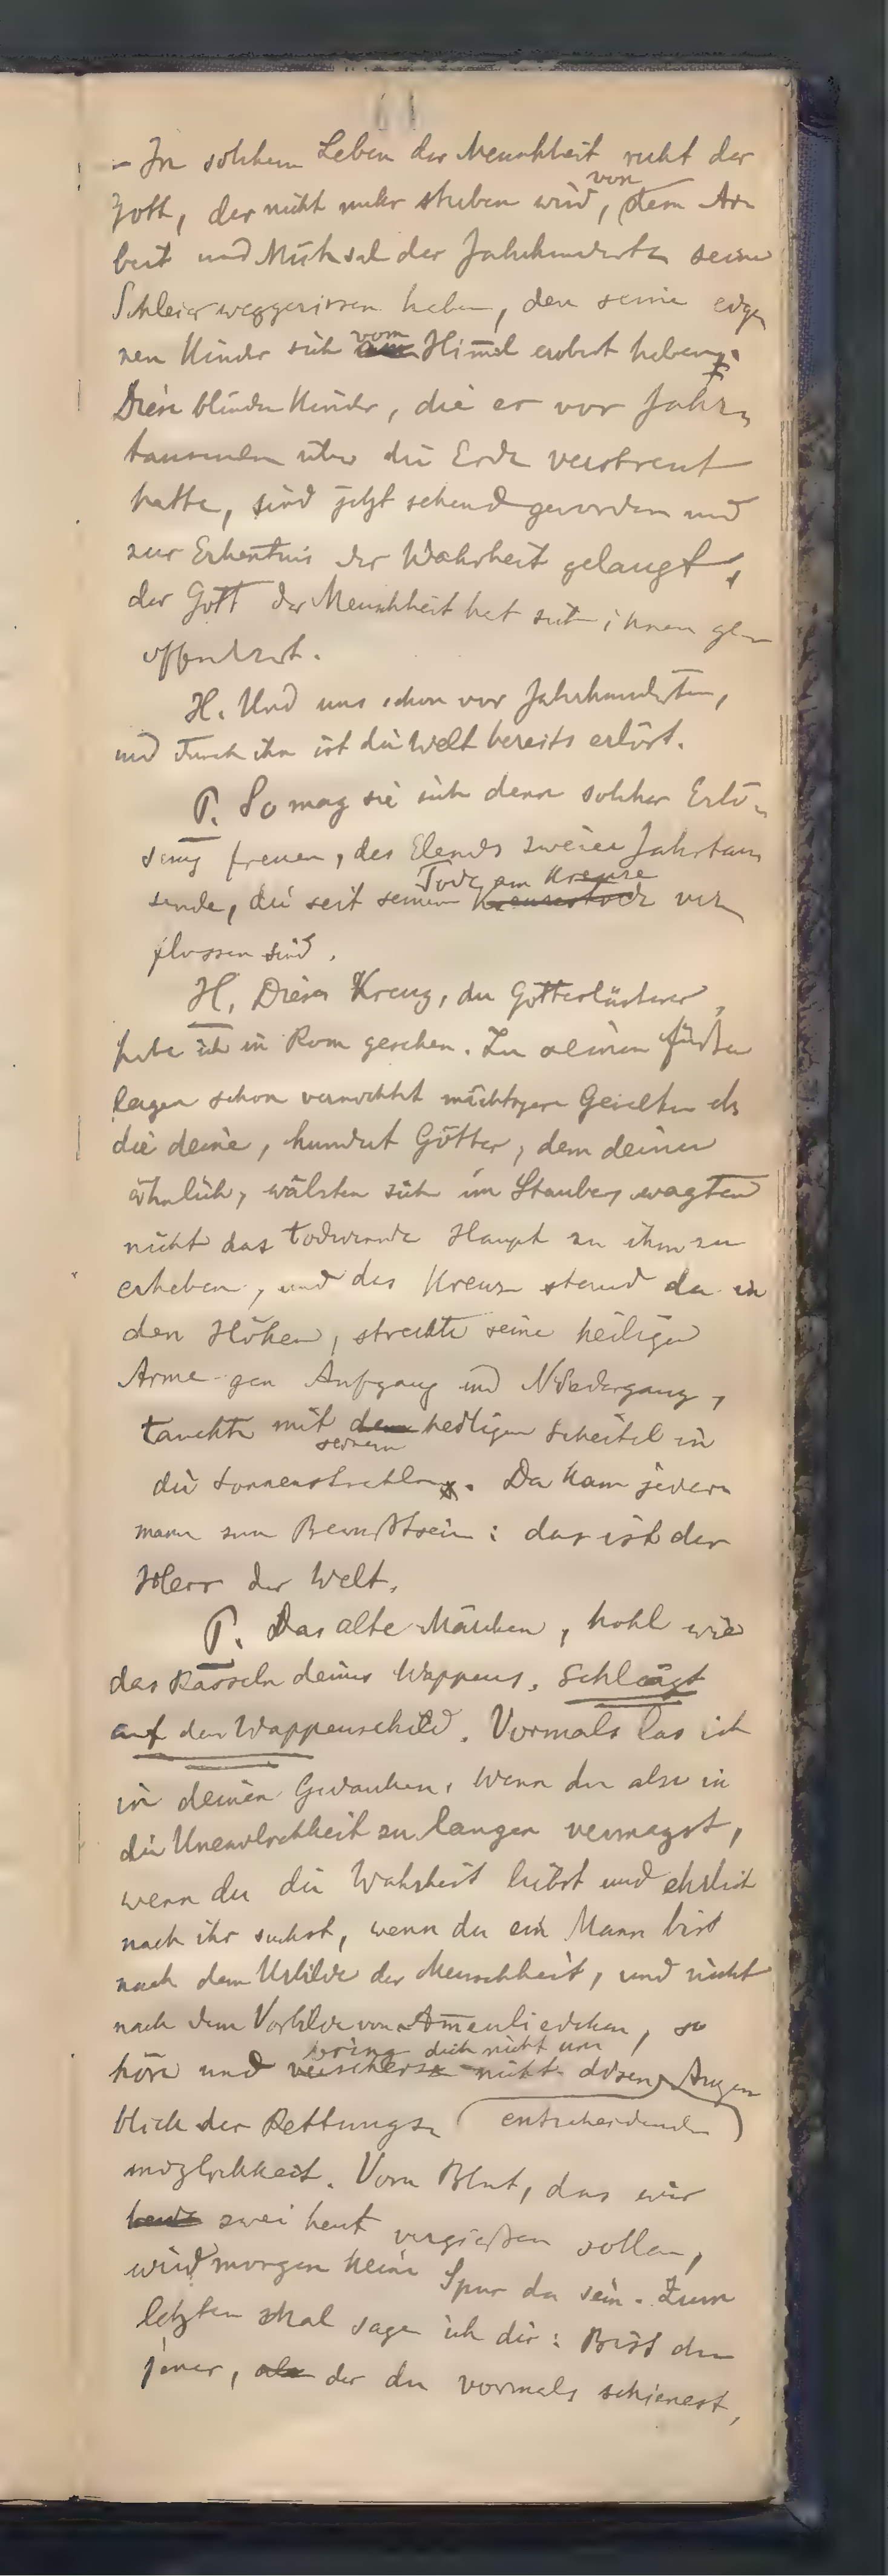 61
– In solchem Leben der Menschheit ruht der
von
Gott, der nicht mehr sterben wird, dem Ar-
beit und Mühsal der Jahrhunderte seine
Schleier weggerissen haben, den seine eige-
vom
nen Kinder sich am Himmel erobert haben.
Diese blinden Kinder, die er vor Jahr-
tausenden über die Erde verstreut
hatte, sind jetzt sehend geworden und
zur Erkentnis der Wahrheit gelangt,
der Gott der Menschheit hat sich ihnen ge-
offenbart.
H. Und uns schon vor Jahrhunderten,
und durch ihn ist die Welt bereits erlöst.
P. So mag sie sich denn solcher Erlö-
sung freuen, des Elends zweier Jahrtau-
Tode am Kreuze
sende, die seit seinem Kreuzestode ver-
flossen sind.
H. Dieses Kreuz, du Gotteslästerer,
habe ich in Rom gesehen. Zu seinen Füßen
lagen schon vernichtet mächtigere Gewalten als
die deine, hundert Götter, dem deinen
ähnlich, wälzten sich im Staube, wagten
nicht das todwunde Haupt zu ihm zu
erheben, und das Kreuz stand da in
den Höhen, streckte seine heiligen
Arme gen Aufgang und Niedergang,
tauchte mit dem heiligen Scheitel in
seinem
die Sonnenstrahlen. Da kam jeder-
mann zum Bewußtsein: das ist der
Herr der Welt.
P. Das alte Märchen, hohl wie
das Rasseln deines Wappens. Schlägt
auf den Wappenschild. Vormals las ich
in deinen Gedanken. Wenn du also in
die Unendlichkeit zu langen vermagst,
wenn du die Wahrheit liebst und ehrlich
nach ihr suchst, wenn du ein Mann bist
nach dem Urbilde der Menschheit, und nicht
nach dem Vorbilde von Ammenliedchen, so
bring dich nicht um
höre und verscherze nicht diesen Augen-
blick der Rettungs- (entscheidenden)
möglichkeit. Vom Blut, das wir
beide zwei heut vergießen sollen,
wird morgen keine Spur da sein. Zum
letzten Mal sage ich dir: Bist du
jener, als der du vormals schienest,